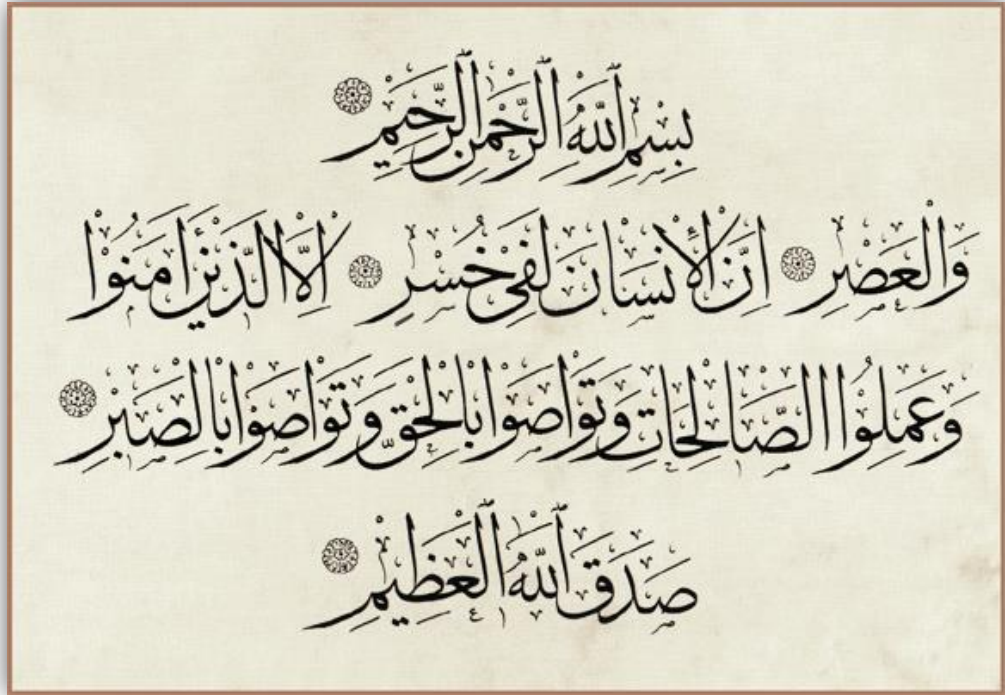 بِسْمِ ٱللَّهِ ٱلرَّحْمٰنِ ٱلرَّحِيْمِ
وَالْعَصْرِ اِنَّ الْإِنْسَانَ لَفِيْ خُسْرٍ اِلَّا الَّذِيْنَ أٰمَنُوْا
وَعَمِلُوا الصَّالِحَاتِ وَتَوَاصَوْا بِالْحَقِّ وَتَوَاصَوْا بِالصَّبْرِ
صَدَقَ ٱللّٰهُ ٱلْعَظِيْمِ